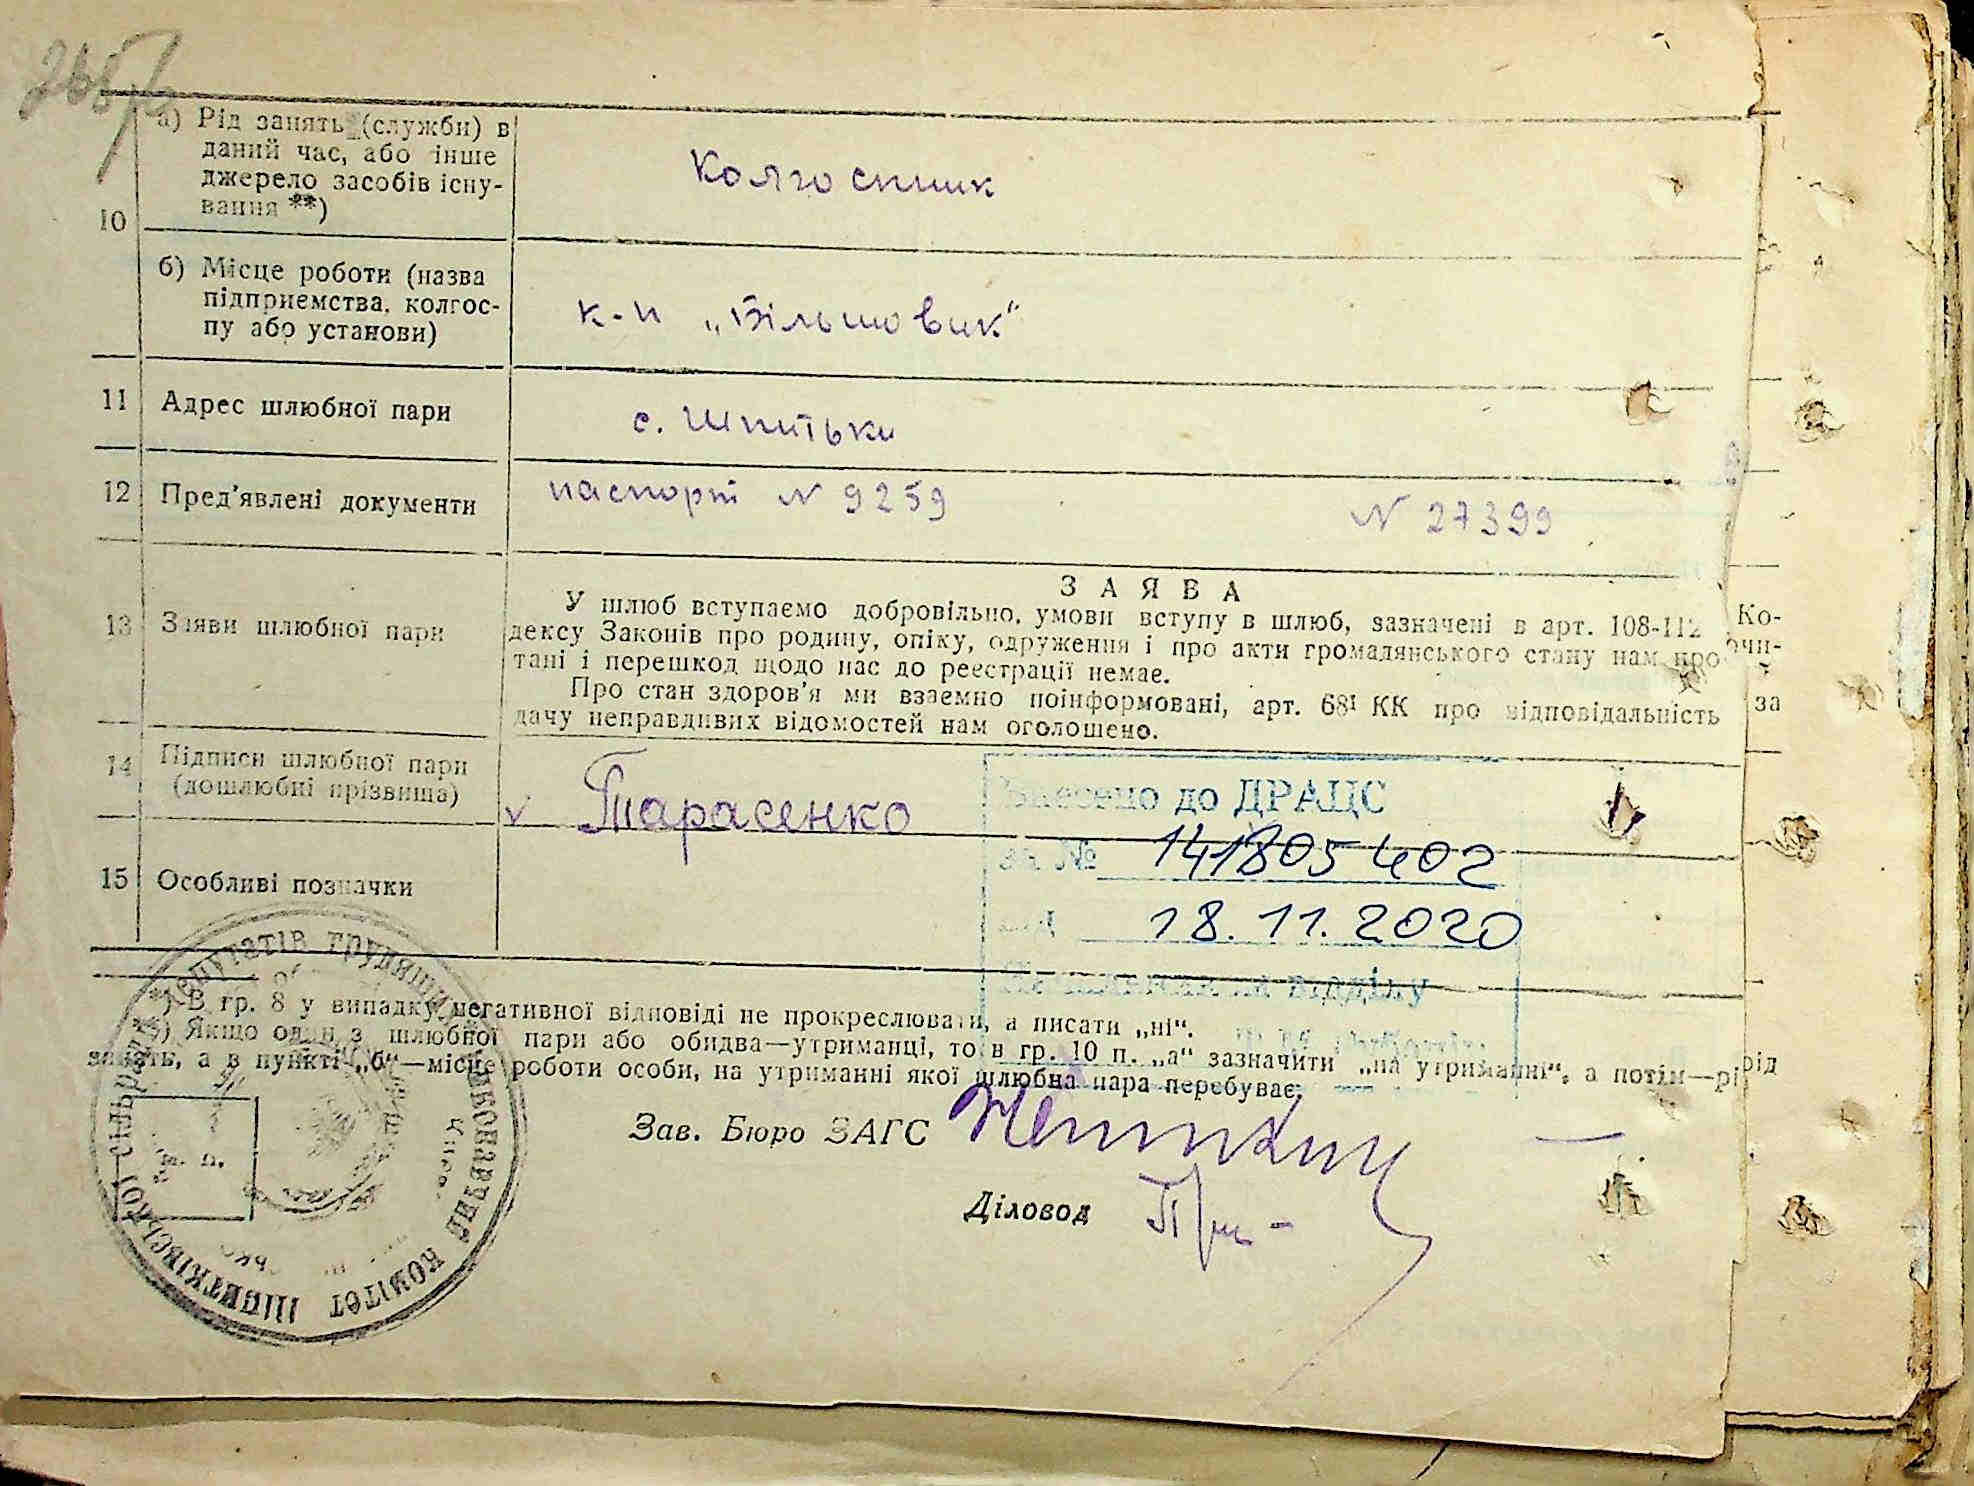 а) Рід занять (служби) в
даний час, або інше
джерело засобів існу-
вання **)
10
Колгоспник
б) Місце роботи (назва
підприємства, колгос-
пу або установи)
к-п „Більшовик"
11 Адрес шлюбної пари
с. Шпитьки
12 Пред'явлені документи
паспорт N 9259 N 27399
13 Заяви шлюбної пари
ЗАЯВА
У шлюб вступаємо добровільно, умови вступу в шлюб, зазначені в арт. 108-112 Ко-
дексу Законів про родину, опіку, одруження і про акти громадянського стану нам про
тані і перешкод щодо нас до реєстрації немає.
Про стан здоров'я ми взаємно поінформовані, арт. 68¹ КК про відповідальність за
дачу неправдивих відомостей нам оголошено.
14 Підписи шлюбної пари
(дошлюбні прізвища)
v Тарасенко
Внесено до ДРАЦС
за № 141805402
18.11.2020
відділу
15 Особливі позначки
*) В гр. 8 у випадку негативної відповіді не прокреслювати, а писати „ні".
Якщо один з шлюбної пари або обидва—утриманці, то в гр. 10 п. „а" зазначити „на утриманні", а потім—рід
занять, а в пункті „б"—місце роботи особи, на утриманні якої шлюбна пара перебуває.
Зав. Бюро ЗАГС
Діловод
м. п.
депутатів трудящих
виконавчий комітет Шпитьківської сільради